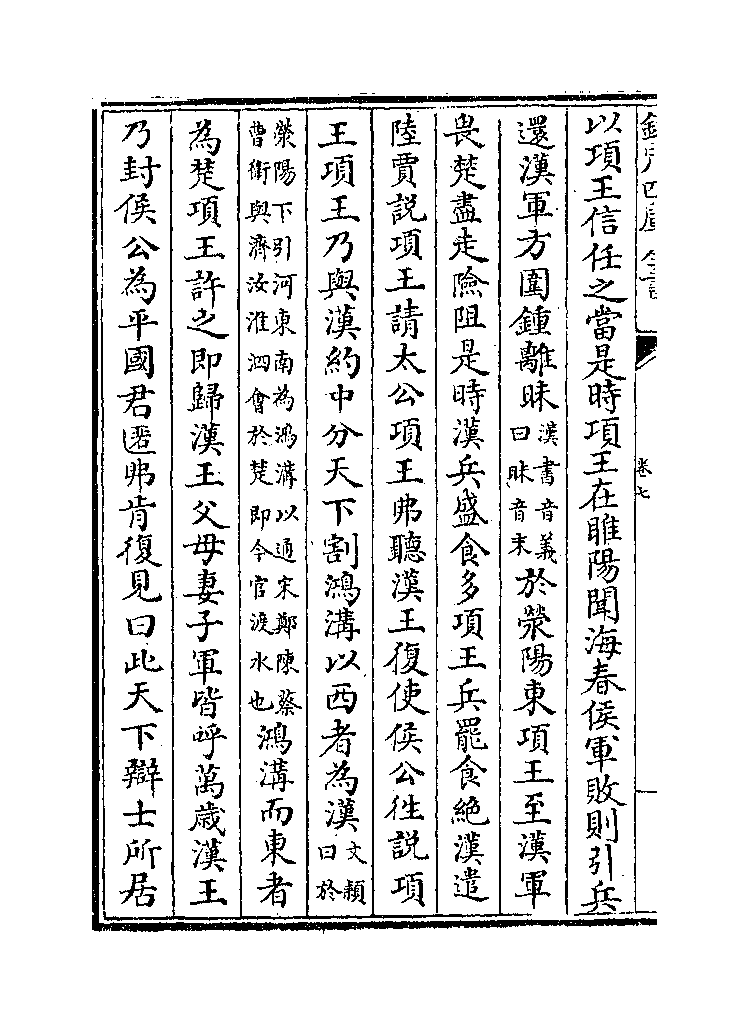 欽定四庫全書
卷七
以項王信任之當是時項王在睢陽聞海春侯軍敗則引兵
還漢軍方圍鍾離昧漢書音義曰昧音末於滎陽東項王至漢軍
畏楚盡走險阻是時漢兵盛食多項王兵罷食絶漢遣
陸賈説項王請太公項王弗聽漢王復使侯公徃説項
王項王乃與漢約中分天下割鴻溝以西者為漢文穎曰於
滎陽下引河東南為鴻溝以通宋鄭陳蔡曹衛與濟汝淮泗會於楚即今官渡水也鴻溝而東者
為楚項王許之即歸漢王父母妻子軍皆呼萬歳漢王
乃封侯公為平國君匿弗肯復見曰此天下辯士所居